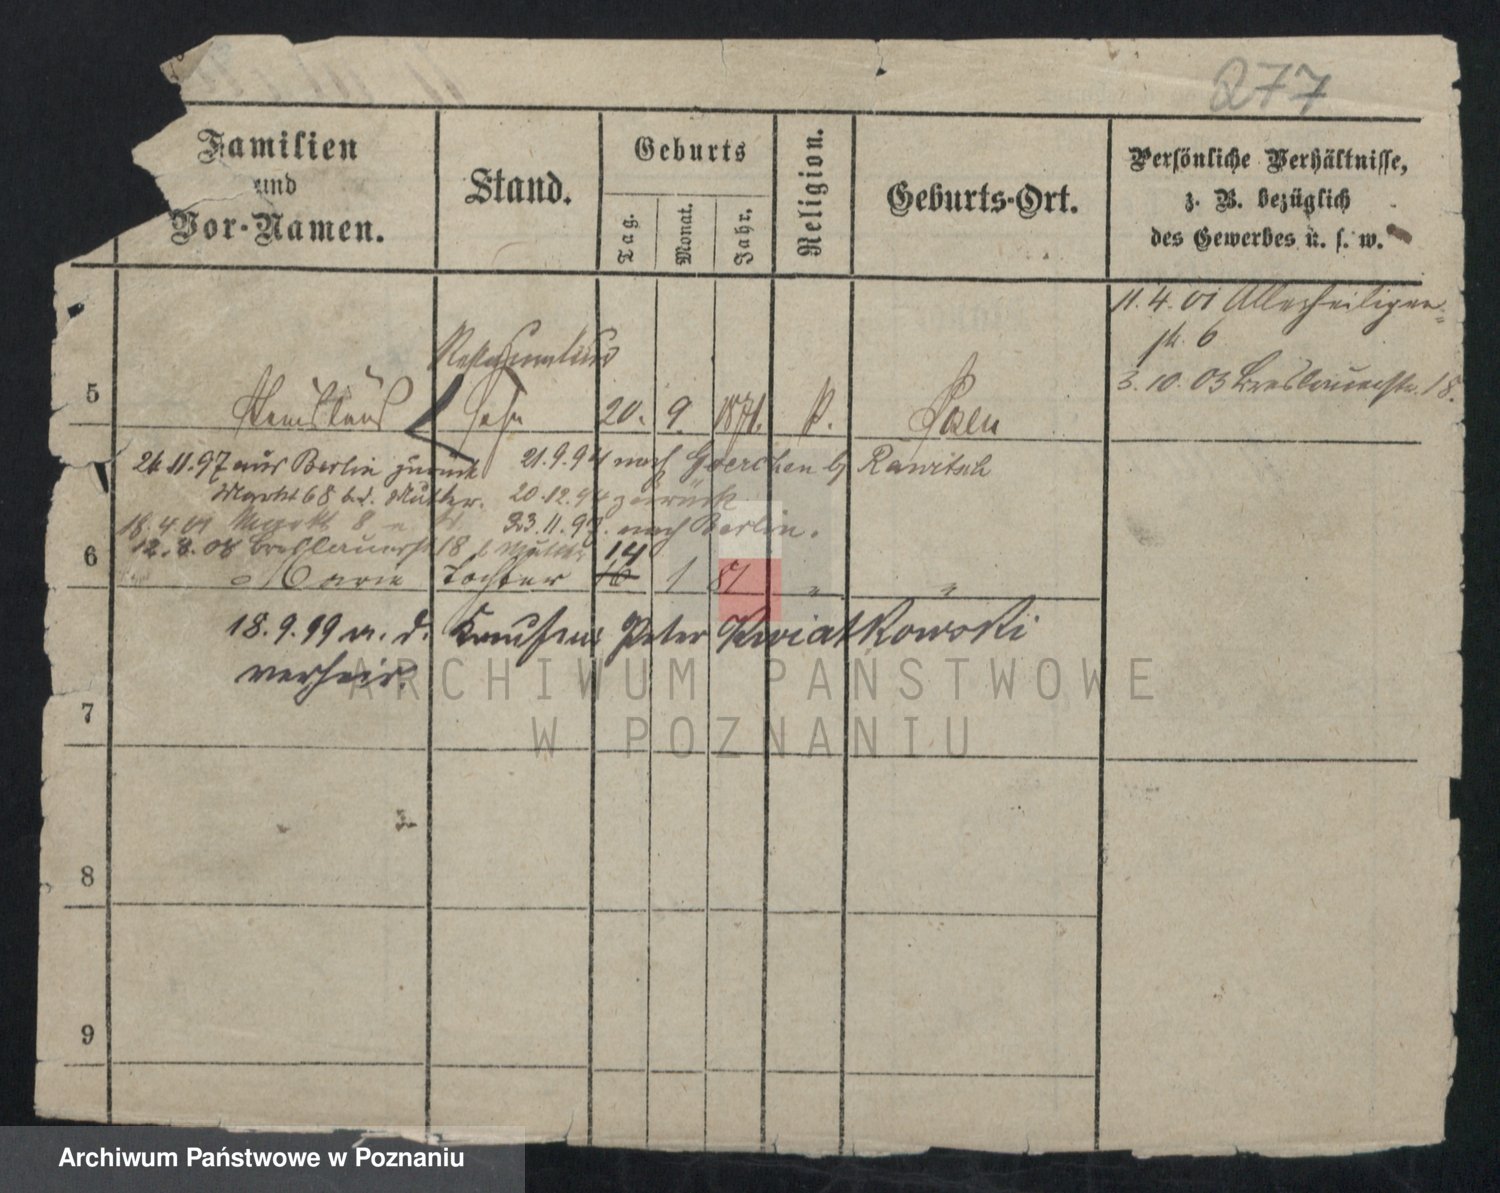 277
Familien
und
Vor-Namen.
Stand.
Geburts
Tag.
Monat.
Jahr.
Religion.
Geburts-Ort.
Persönliche Verhältnisse,
z. B. bezüglich
des Gewerbes u. s. w.
11. 4. 01 Allerheiligen-
3. 10. 03 Breslauerstr. 18.
5
Sohn 20. 9. 1871.
21.9.94 nach Goerchen b/ Rawitsch
.11.97 aus Berlin zurück
Markt 68 b. d. Mutter. 20.12.94 zurück
18.4.01 Markt 8
23.11.97. nach Berlin.
12.8.08 Breslauerstr 18 b Mutter
6
Marie Tochter 14 1 81 " "
18.9.99 a. d. Peter Kwiatkowski
verheir.
7
8
9
ARCHIWUM PAŃSTWOWE
W POZNANIU
Archiwum Państwowe w Poznaniu